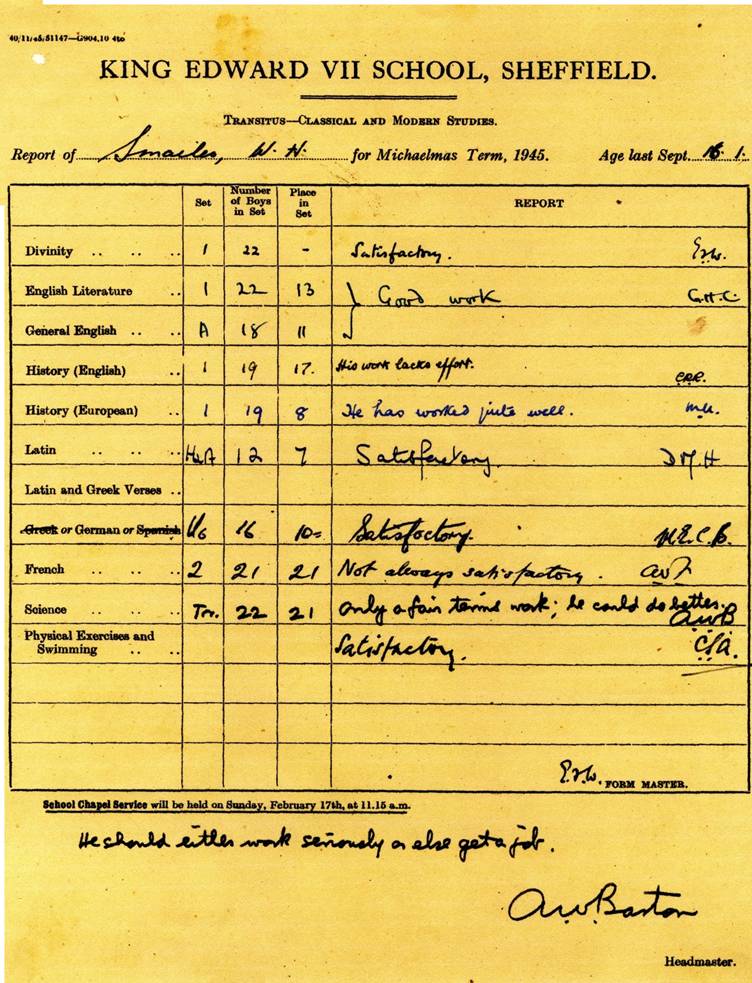 40/11/45/51147—G904.10 4to
KING EDWARD VII SCHOOL, SHEFFIELD.
TRANSITUS—CLASSICAL AND MODERN STUDIES.
Report of Smailes, W. H. for Michaelmas Term, 1945. Age last Sept. 16. 1.
Set Number of Boys in Set Place in Set REPORT
Divinity .. .. .. 1 22 - Satisfactory. E.V.W.
English Literature .. 1 22 13 Good work G.H.C.
General English .. .. A 18 11
History (English) .. 1 19 17. His work lacks effort.
History (European) .. 1 19 8 He has worked quite well.
Latin .. .. .. 12 7 Satisfactory.
Latin and Greek Verses ..
Greek or German or Spanish 16 10= Satisfactory.
French .. .. .. 2 21 21 Not always satisfactory.
Science .. .. .. Tr. 22 21 Only a fair terms work; he could do better. AWB
Physical Exercises and
Swimming .. .. Satisfactory.
E.V.W. FORM MASTER.
School Chapel Service will be held on Sunday, February 17th, at 11.15 a.m.
He should either work seriously or else get a job.
A.W. Barton
Headmaster.